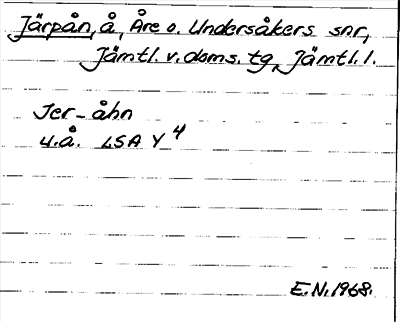 Järpån, å, Åre o. Undersåkers snr,
Jämtl. v. doms. tg, Jämtl. l.
Jer-åhn
u.å. LSA Y 4
E.N. 1968.